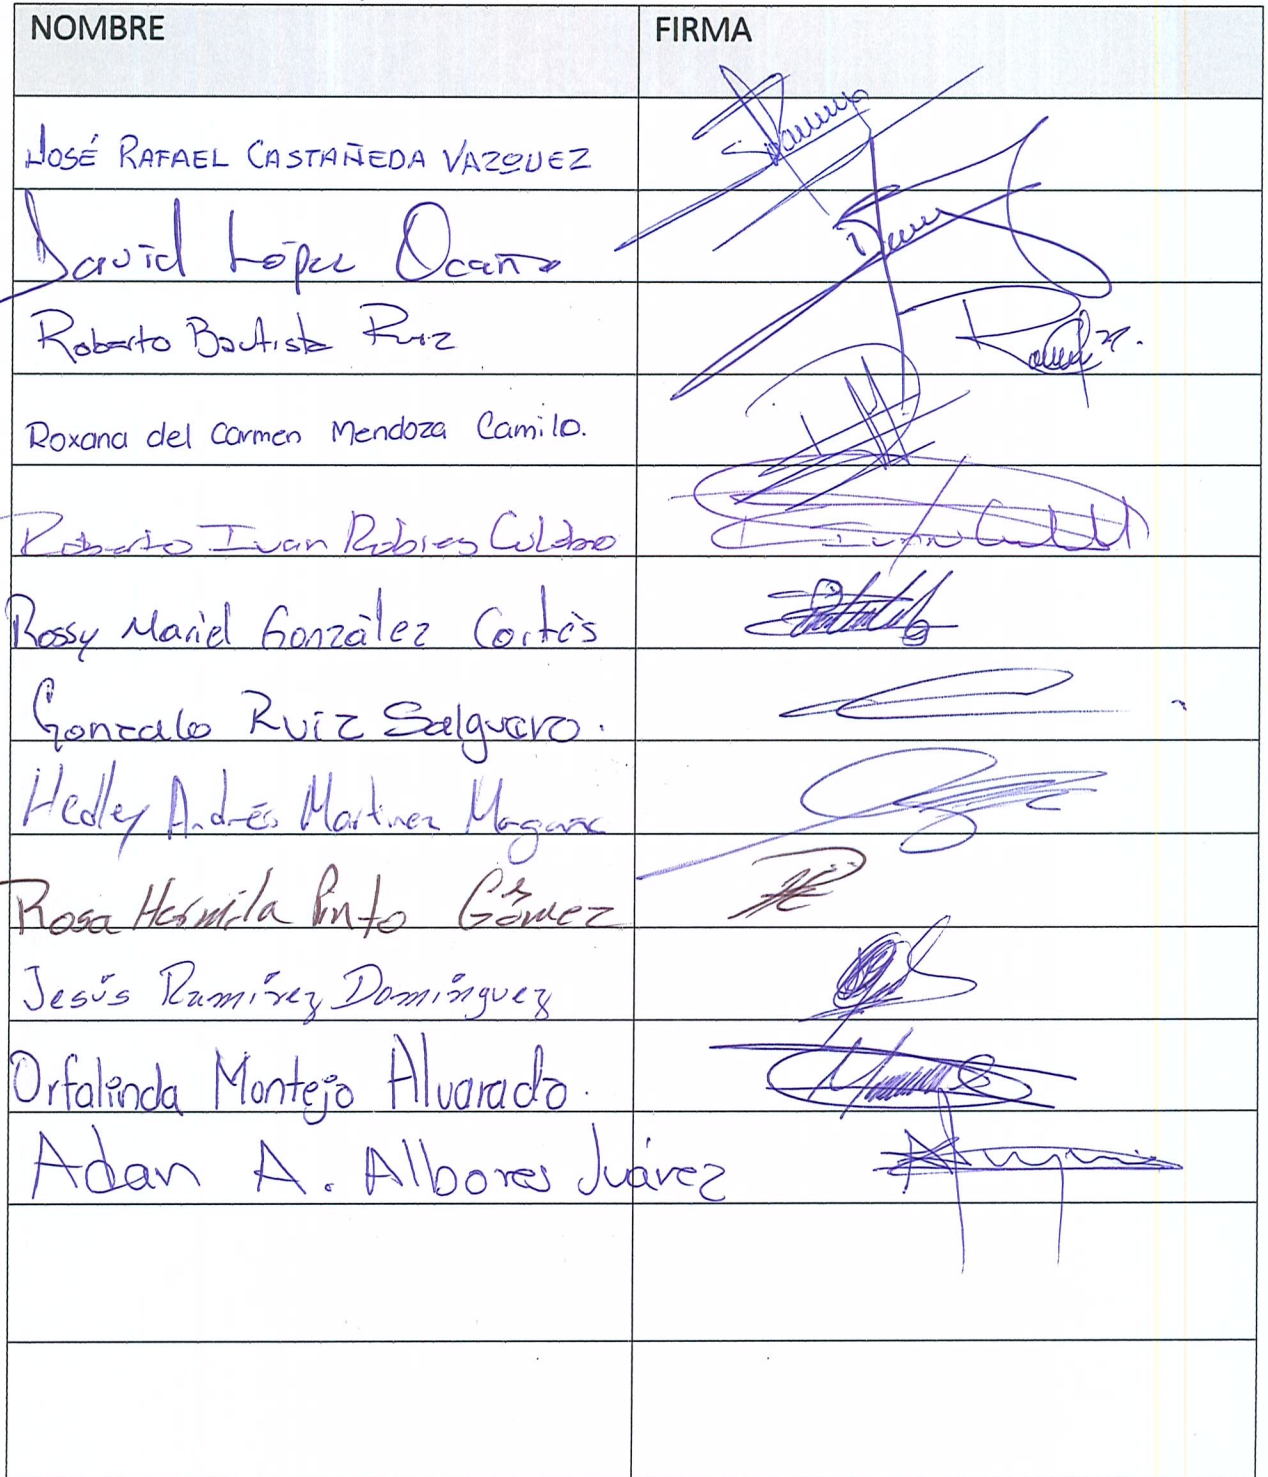 NOMBRE FIRMA
JOSÉ RAFAEL CASTAÑEDA VAZQUEZ
David López Ocaña
Roberto Bautista Ruiz
Roxana del Carmen Mendoza Camilo.
Roberto Ivan Robles
Rossy Mariel Gonzàlez Cortès
Gonzalo Ruiz Salguero.
Hedley Andrés Martinez Magana
Rosa Hermila Pinto Gómez
Jesús Ramírez Domínguez
Orfalinda Montejo Alvarado.
Adan A. Albores Juárez